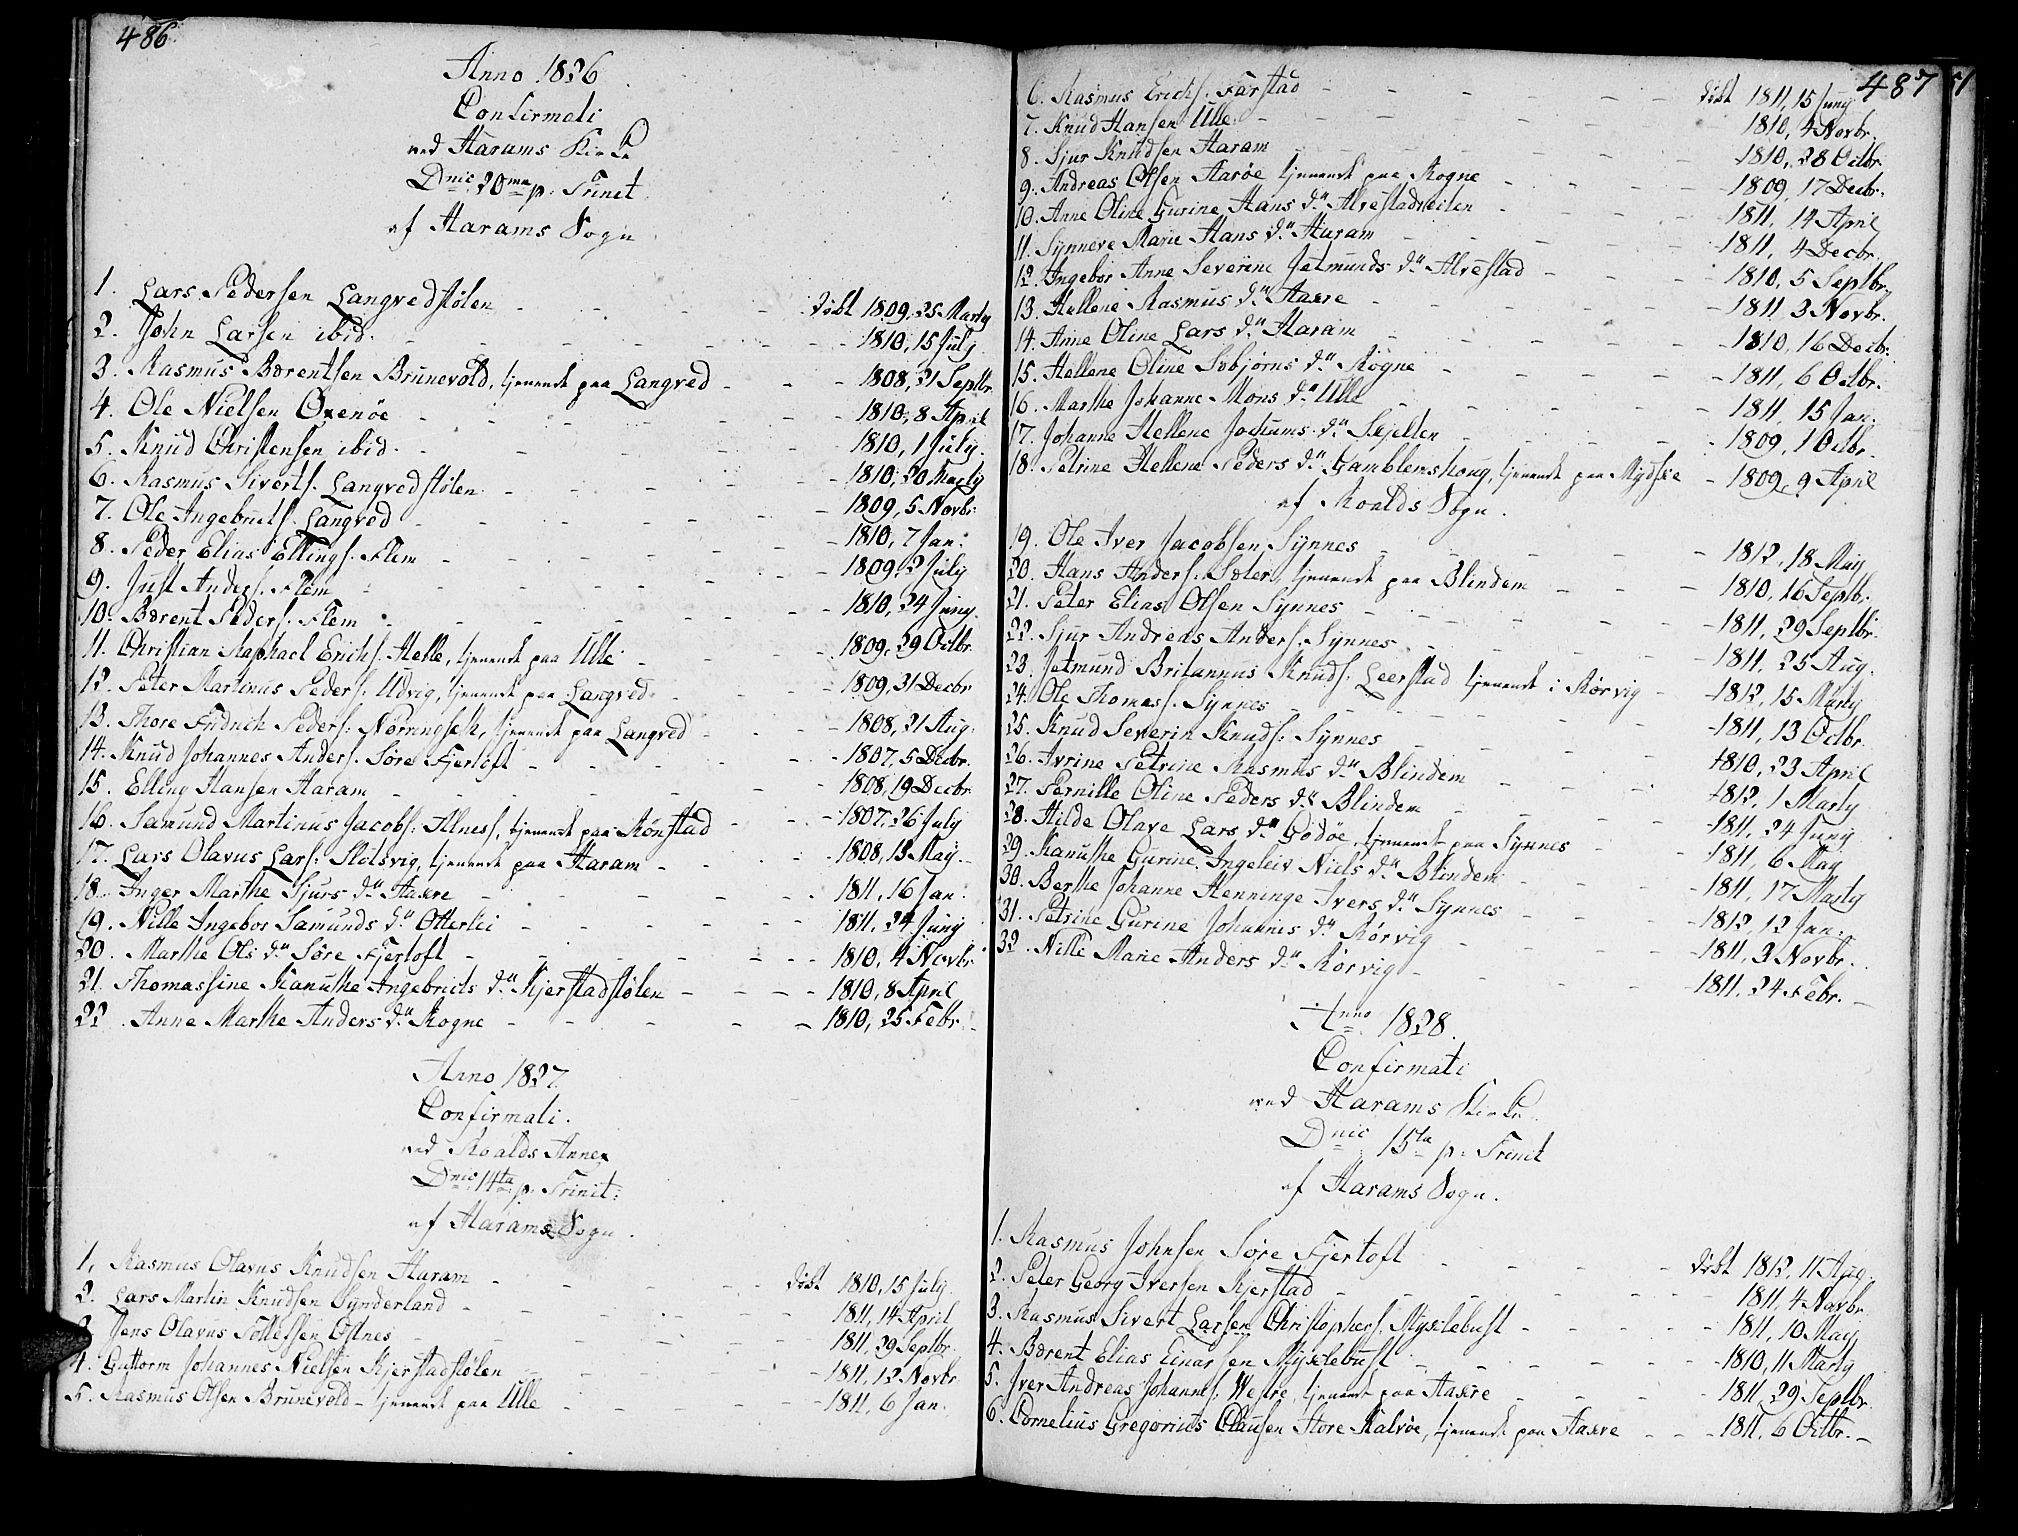 486.
Anno 1826
Confirmati
ved Harams Kirke
Dnic: 20ma p: Trinit.
af Harams Sogn
1. Lars Pedersen Langvedstølen - - - - døbt 1809, 25 Marty
2. John Larsen ibid. - - - - 1810, 15 July
3. Rasmus Bærentsen Brunevold, tjenende paa Langved - - - 1808, 21 Septbr.
4. Ole Nielsen Oxenøe - - - - 1810, 8 April
5. Knud Christensen ibid. - - - - 1810, 1 July.
6. Rasmus Siverts. Langvedstølen. - - - - 1810, 20 Marty
7. Ole Ingebrets. Langved - - - - 1809, 5 Novbr.
8. Peder Elias Ellings. Flem - - - - 1810, 7 Jan:
9. Just Anders. Flem - - - - 1809, 2 July
10. Bærent Peders. Flem - - - - 1810, 24 Juny.
11. Christian Raphael Erichs. Helle, tjenende paa Ulle - - - 1809, 29 Octbr.
12. Peter Martinus Peders: Udvig, tjenende paa Langved - - - 1809, 31 Decbr
13. Thore Fridrich Peders: Nørringseth, tjenende paa Langved - - - 1808, 21 Aug:
14. Knud Johannes Anders. Søre Fjertoft - - - - 1807, 5 Decbr.
15. Elling Hansen Haram - - - - 1808, 19 Decbr
16. Samund Martinus Jacobs: Illness, tjenende paa Rønstad - - - 1807, 26 July
17. Lars Olavus Lars: Slotsvig, tjenende paa Haram - - - - 1808, 15 May.
18. Inger Marthe Sjurs d:r Haxre - - - - 1811, 16 Jan:
19. Nille Ingebor Samunds d:r Otterlei - - - - 1811, 24 Juny
20. Marthe Ols d:r Søre Fjertoft - - - - 1810, 4 Novbr
21. Thomassine Kanuthe Ingebricts d:r Kjerstadstølen - - - - 1810, 8 April
22. Anne Marthe Anders d:r Rogne - - - - 1810, 25 Febr.
Anno 1827.
Confirmati.
ved Roalds Annex
Dnic: 14ta p: Trinit:
af Harams Sogn.
1. Rasmus Olavus Knudsen Haram - - - - døbt 1810, 15 July.
2. Lars Martin Knudsen Synderland - - - - 1811, 14 April
3. Jens Olavus Tollefsen Ostnes - - - - 1811, 29 Septbr.
4. Guttorm Johannes Nielsen Kjerstadstølen - - - - 1811, 12 Novbr.
5. Rasmus Olsen Brunevold - tjenende paa Ulle - - - - 1811, 6 Jan.
487
6. Rasmus Erichs. Farstad - - - - døbt 1811, 15 Juny
7. Knud Hansen Ulle. - - - - 1810, 4 Novbr.
8. Sjur Knudsen Haram - - - - 1810, 28 Octbr.
9. Andreas Olsen Harøe tjenende paa Rogne - - - - 1809, 17 Decbr.
10. Anne Oline Gurine Hans d:r Alvestadveilen - - - - 1811, 14 April
11. Synneve Marie Hans d:r Haram - - - - 1811, 4 Decbr.
12. Ingebor Anne Severine Jetmunds d:r Alvestad - - - 1810, 5 Septbr.
13. Hellene Rasmus d:r Haxre - - - - 1811, 3 Novbr.
14. Anne Oline Lars d:r Haram - - - - 1810, 16 Decbr:
15. Hellene Oline Svbjørns d:r Rogne - - - - 1811, 6 Octbr.
16. Marthe Johanne Mons d:r Ulle - - - - 1811, 15 Jan:
17. Johanne Hellene Jochums d:r Skjelten - - - - 1809, 1 Octbr.
18. Petrine Hellene Peders d:r Gamblemshoug, tjenende paa Mydske - 1809, 9 April
af Roalds Sogn.
19. Ole Iver Jacobsen Synnes - - - - 1812, 18 May
20. Hans Anders: Sæter, tjenende paa Blindem - - - 1810, 16 Septbr.
21. Peter Elias Olsen Synnes - - - - 1811, 29 Septbr.
22. Sjur Andreas Anders. Synnes - - - - 1811, 25 Aug.
23. Jetmund Britannus Knuds. Leerstad tjenende i Rørvig - - 1812, 15 Marty
24. Ole Thomas. Synnes - - - - 1811, 13 Octbr.
25. Knud Severin Knuds: Synnes - - - - 1810, 23 April
26. Ivrine Petrine Rasmus d:r Blindem - - - - 1812, 1 Marty
27. Pernille Oline Peders d:r Blindem - - - - 1811, 24 Juny
28. Hilde Olave Lars d:r Godøe, tjenende paa Synnes - - - 1811, 6 May
29. Kanuthe Gurine Ingeleiv Niels d:r Blindem - - - 1811, 17 Marty
30. Berthe Johanne Henninge Ivers d:r Synnes - - - 1812, 12 Jan:
31. Petrine Gurine Johannes d:r Rørvig - - - - 1811, 3 Novbr.
32. Nille Marie Anders d:r Rørvig - - - - 1811, 24 Febr.
Anno 1828.
Confirmati
ved Harams Kirke.
Dnic 15ta p: Trinit
af Harams Sogn.
1. Rasmus Johnsen Søre Fjertoft - - - - døbt 1812, 11 Aug.
2. Peter Georg Iversen Kjerstad - - - - 1811, 4 Novbr.
3. Rasmus Sivert Larsen Christophers. Myxlebust - - - - 1811, 10 May
4. Bærent Elias Einarsen Myxlebust - - - - 1810, 11 Marty
5. Iver Andreas Johannes. Westre, tjenende paa Haxre - - - 1811, 29 Septbr.
6. Cornelius Gregorius Clausen Store Kalvøe, tjenende paa Haxre - - - 1811, 6 Octbr.